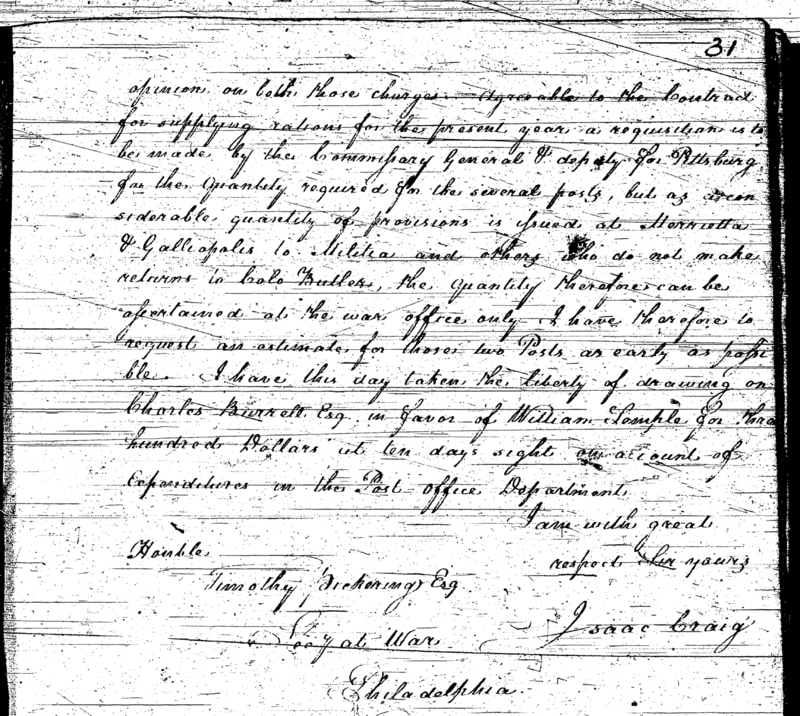 31
opinion on both those charges. Agreeable to the Contract
for supplying rations for the present year a requisition is to
be made by the Commissary General & deputy for Pittsburg
for the Quantity required for the several posts, but as a con
siderable quantity of provisions is issued at Merrietta
& Galliopolis to Militia and others who do not make
returns to Colo Butler, the quantity therefore can be
ascertained at the war office only I have therefore to
request an estimate for those two Posts as early as possi
ble. I have this day taken the liberty of drawing on
Charles Burrell Esq in favor of William Semple for three
hundred Dollars at ten days sight on account of
Expenditures in the Post office Department
I am with great
respect Sir yours
Honble
Timothy Pickering Esq
Isaac Craig
Secy at War
Philadelphia